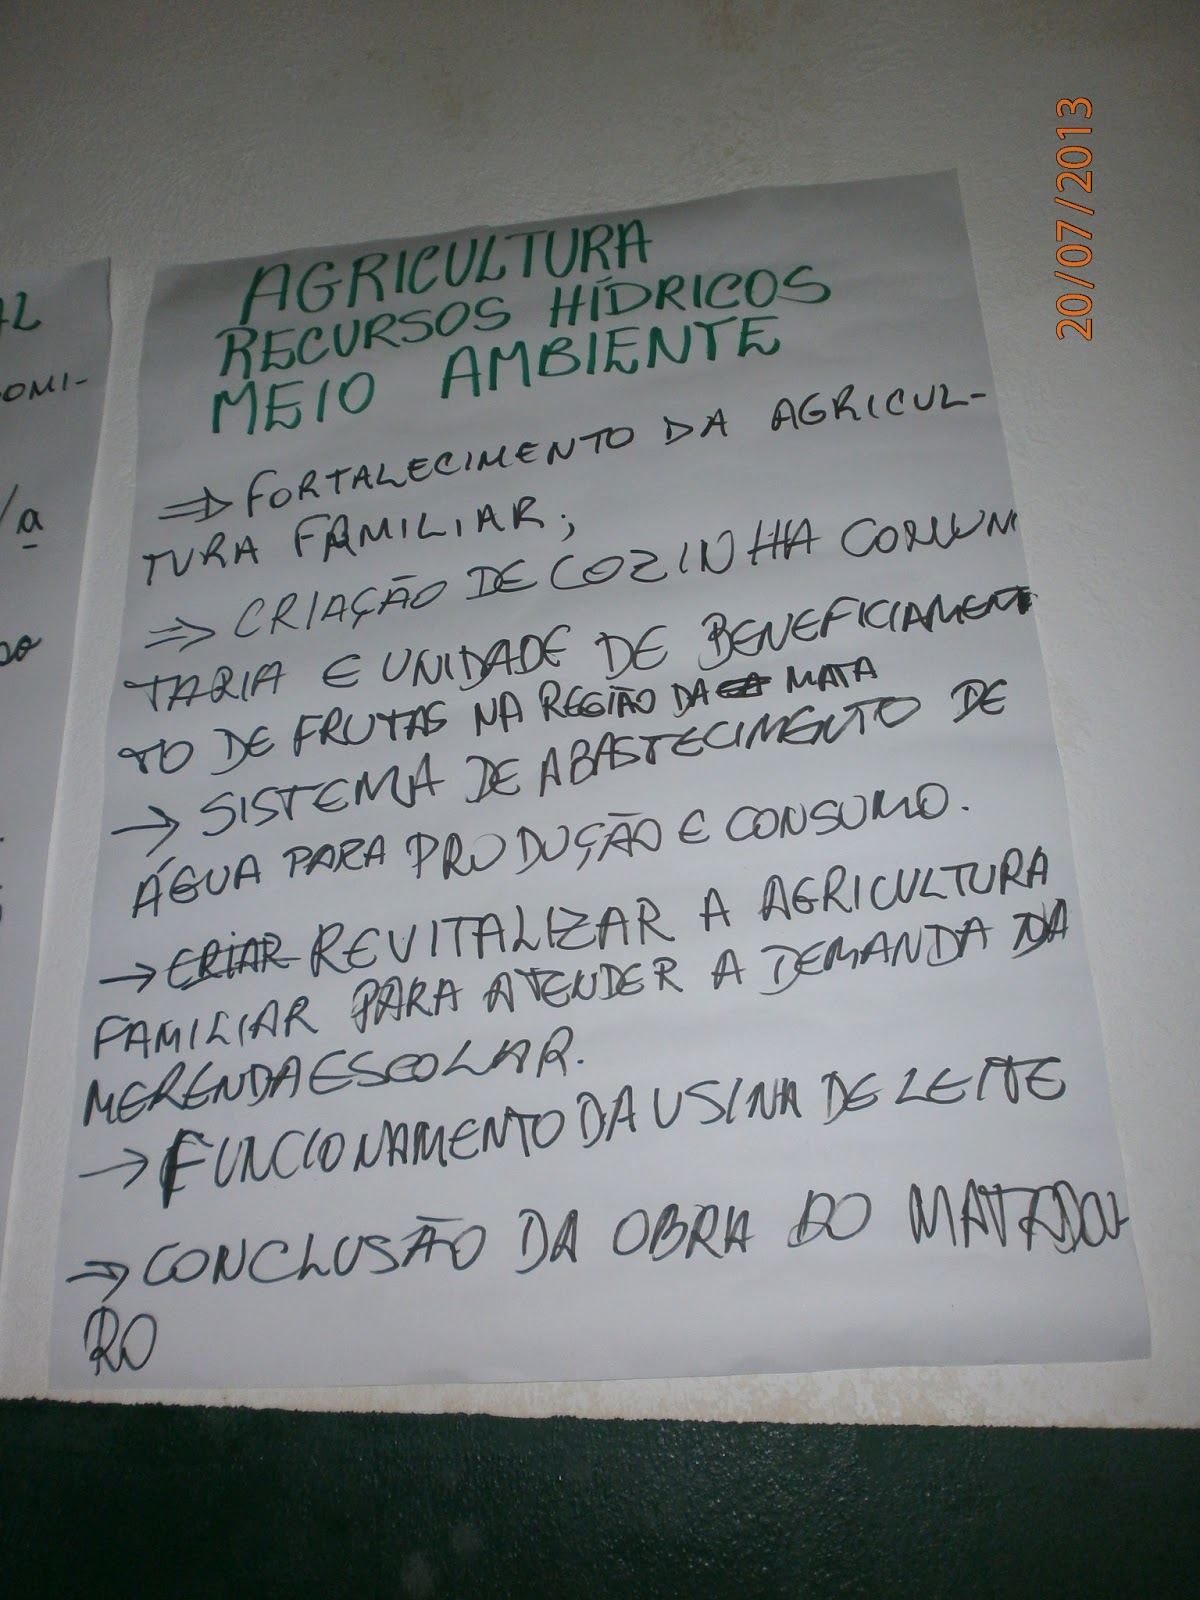 20/07/2013
AGRICULTURA
RECURSOS HÍDRICOS
MEIO AMBIENTE
⇒ FORTALECIMENTO DA AGRICUL-
TURA FAMILIAR;
⇒ CRIAÇÃO DE COZINHA COMUNI
TARIA E UNIDADE DE BENEFICIAMEN
TO DE FRUTAS NA REGIÃO DA MATA
→ SISTEMA DE ABASTECIMENTO DE
ÁGUA PARA PRODUÇÃO E CONSUMO.
→ CRIAR REVITALIZAR A AGRICULTURA
FAMILIAR PARA ATENDER A DEMANDA DA
MERENDA ESCOLAR.
→ FUNCIONAMENTO DA USINA DE LEITE
→ CONCLUSÃO DA OBRA DO MATADOU
RO
AL
OMI-
/a